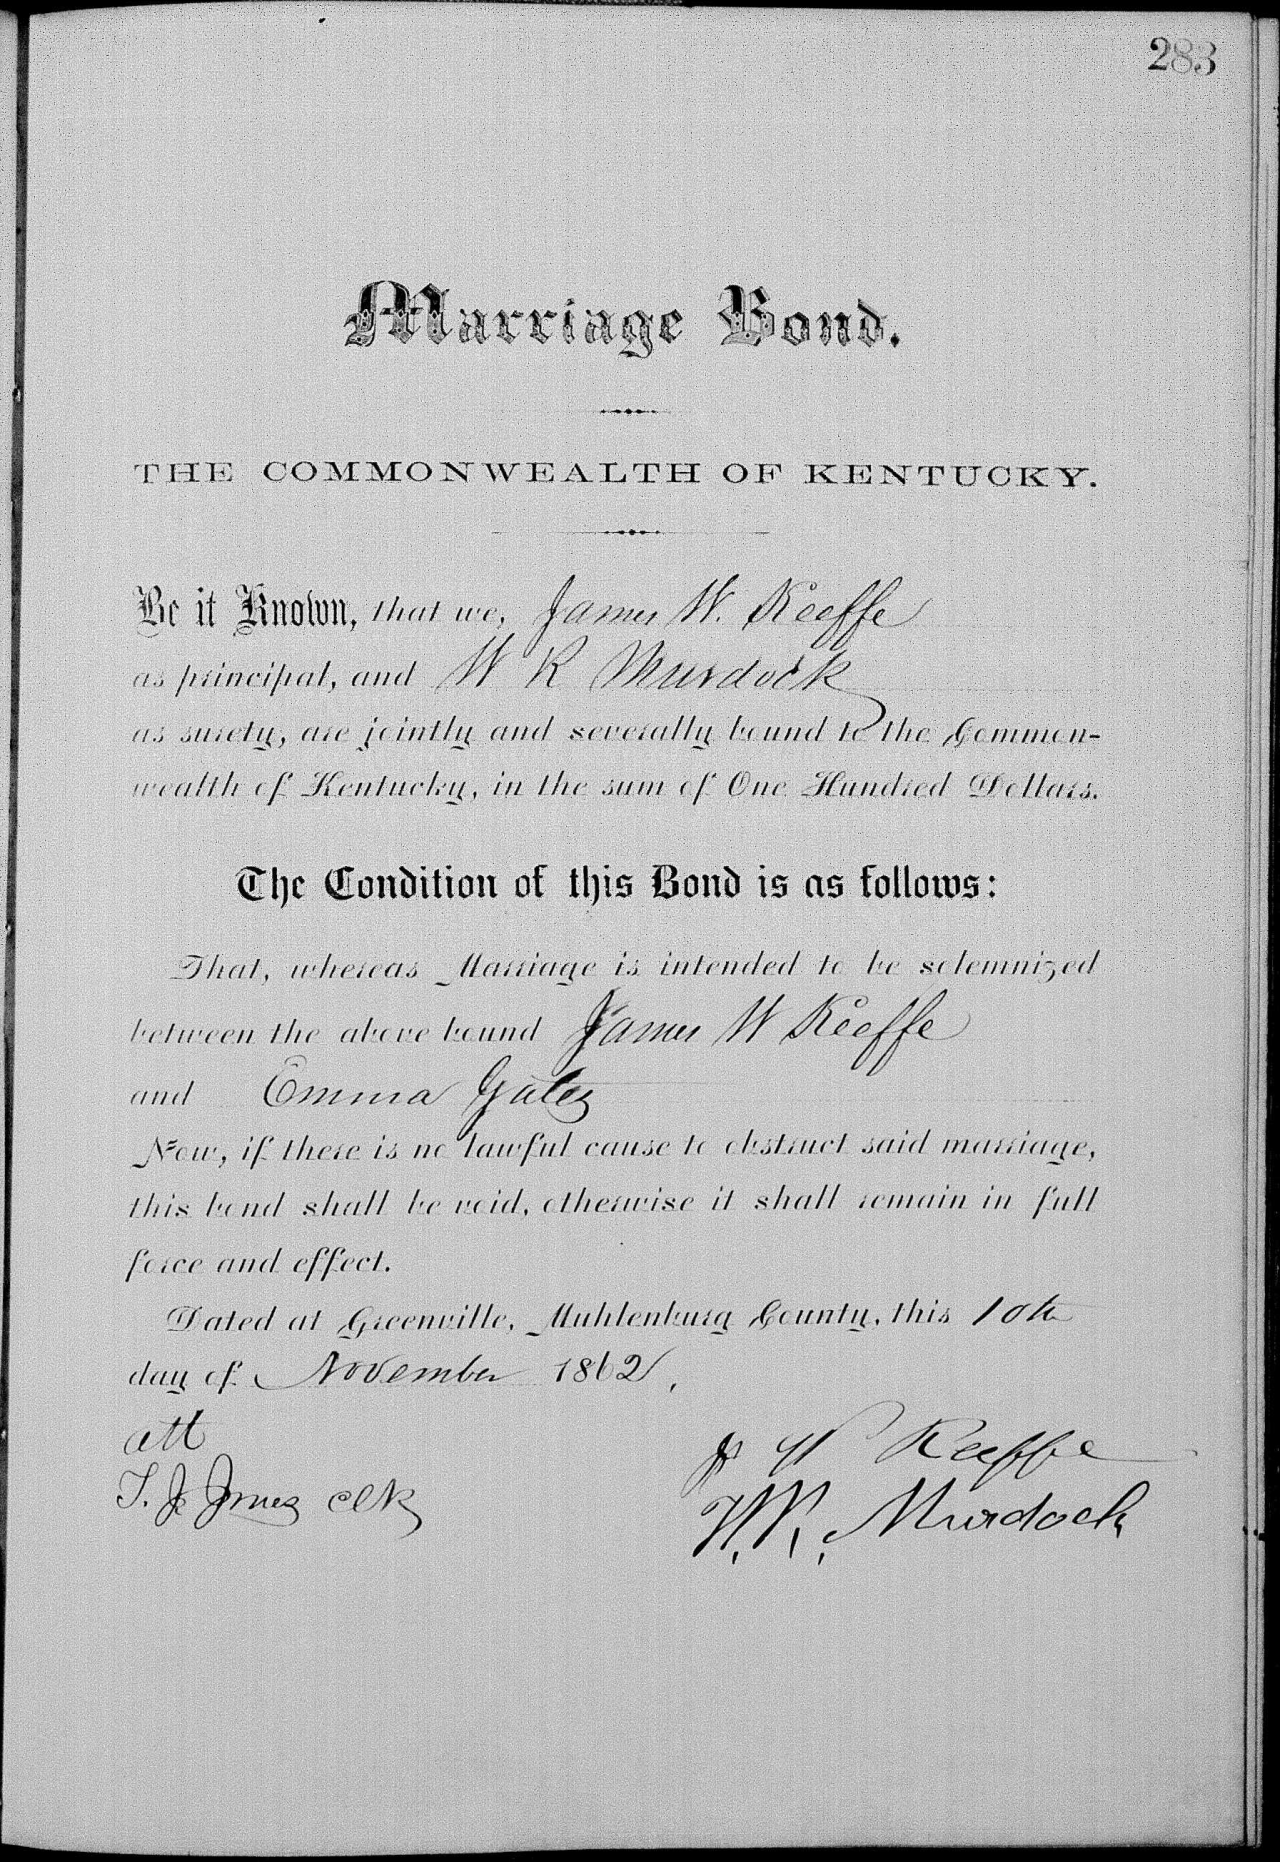 283
Marriage Bond.
THE COMMONWEALTH OF KENTUCKY.
Be it Known, that we, James W. Keeffe
as principal, and W R Murdock
as surety, are jointly and severally bound to the Common-
wealth of Kentucky, in the sum of One Hundred Dollars.
The Condition of this Bond is as follows:
That, whereas Marriage is intended to be solemnized
between the above bound James W Keeffe
and Emma Gates
Now, if there is no lawful cause to obstruct said marriage,
this bond shall be void, otherwise it shall remain in full
force and effect.
Dated at Greenville, Muhlenburg County, this 10th
day of November 1862.
att
T. J. Jones clk
J W Keeffe
W. R. Murdock